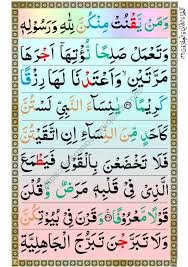 وَمَنْ يَّقْنُتْ مِنْكُنَّ لِلّٰهِ وَرَسُوْلِهٖ
وَتَعْمَلْ صَالِحًا نُّؤْتِهَآ اَجْرَهَا
مَرَّتَيْنِ ۙ وَاَعْتَدْنَا لَهَا رِزْقًا
كَرِيْمًا ۝ يٰنِسَآءَ النَّبِيِّ لَسْتُنَّ
كَاَحَدٍ مِّنَ النِّسَآءِ اِنِ اتَّقَيْتُنَّ
فَلَا تَخْضَعْنَ بِالْقَوْلِ فَيَطْمَعَ
الَّذِيْ فِيْ قَلْبِهٖ مَرَضٌ وَّقُلْنَ
قَوْلًا مَّعْرُوْفًا ۝ وَقَرْنَ فِيْ بُيُوْتِكُنَّ
وَلَا تَبَرَّجْنَ تَبَرُّجَ الْجَاهِلِيَّةِ